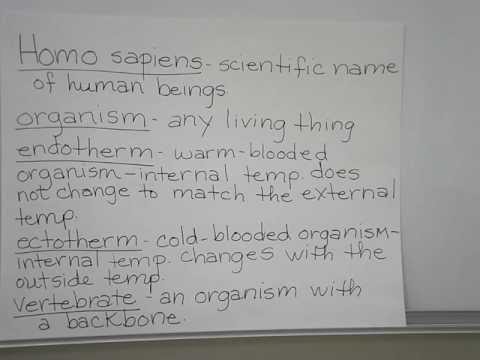 Homo sapiens - scientific name
of human beings.
organism - any living thing
endotherm - warm-blooded
organism - internal temp. does
not change to match the external
temp.
ectotherm - cold-blooded organism -
internal temp. changes with the
outside temp.
vertebrate - an organism with
a backbone.